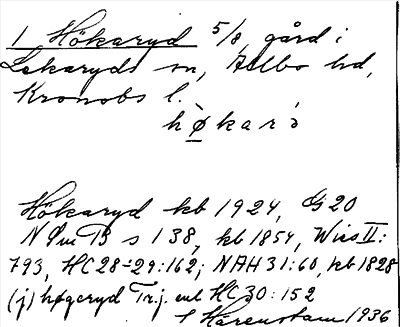 1 Hökaryd 5/8, gård i
Lekaryds sn, Allbo hd,
Kronobs l.
hø̀karə
Hökaryd kb 1924, G 20
NØmB s 138, kb 1854, Wies II:
793, HC 28-29:162; NAH 31:60, kb 1828
(j) høgeryd Tr.j. enl HC 30:152
S Härenstam 1936